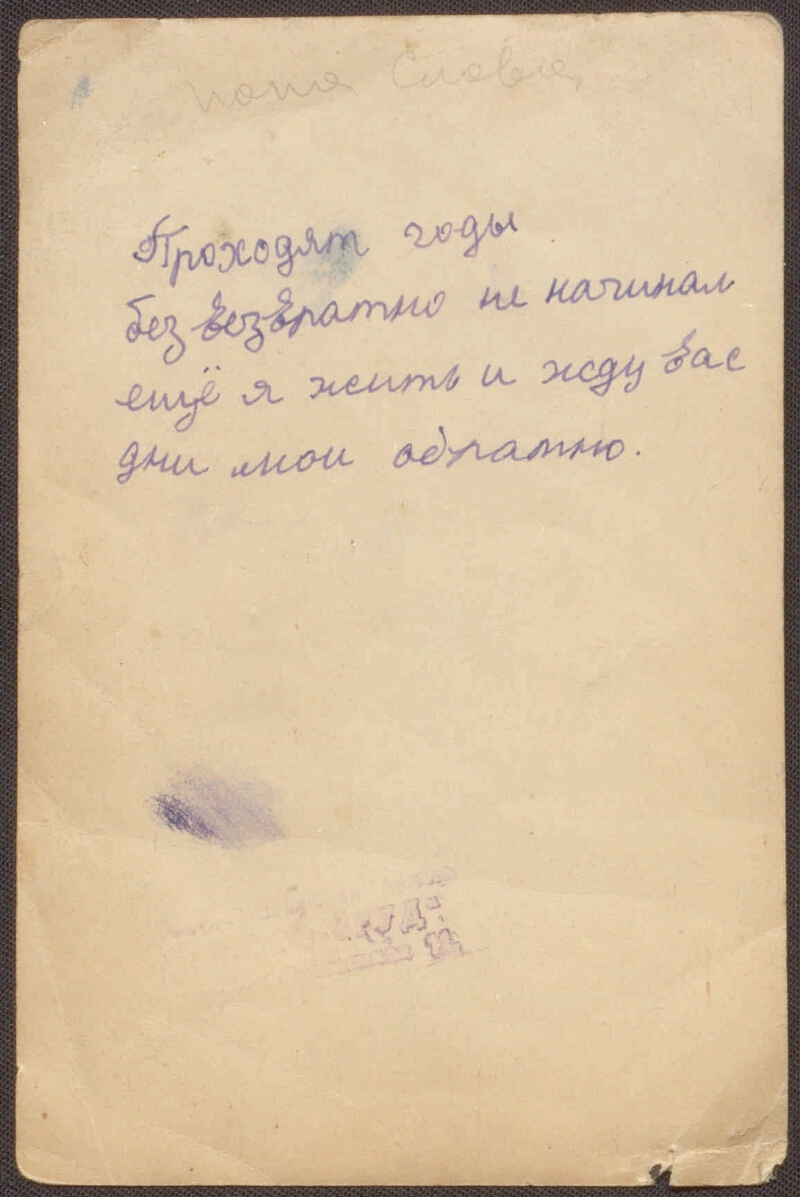 папа Слава
Проходят годы
без везвратно не начинал
ещё я жить и жду вас
дни мои обратно.
14